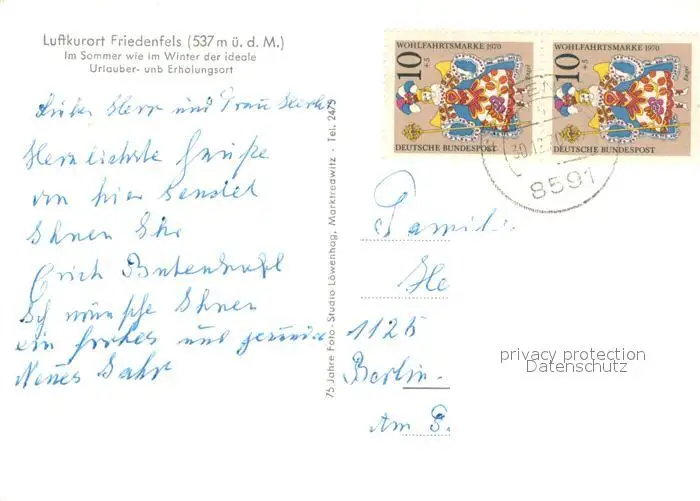 Luftkurort Friedenfels (537 m ü. d. M.)
Im Sommer wie im Winter der ideale
Urlauber- unb Erholungsort
Herr und Frau
Herzlichste Grüße
von hier sendet
Ihnen Ihr
Erich
Ich wünsche Ihnen
ein frohes und gesundes
Neues Jahr
75 Jahre Foto-Studio Löwenhag, Marktredwitz · Tel. 2475
10 +5 WOHLFAHRTSMARKE 1970
DEUTSCHE BUNDESPOST
10 +5 WOHLFAHRTSMARKE 1970
DEUTSCHE BUNDESPOST
8591
Familie
He
Berlin
Am
privacy protection
Datenschutz